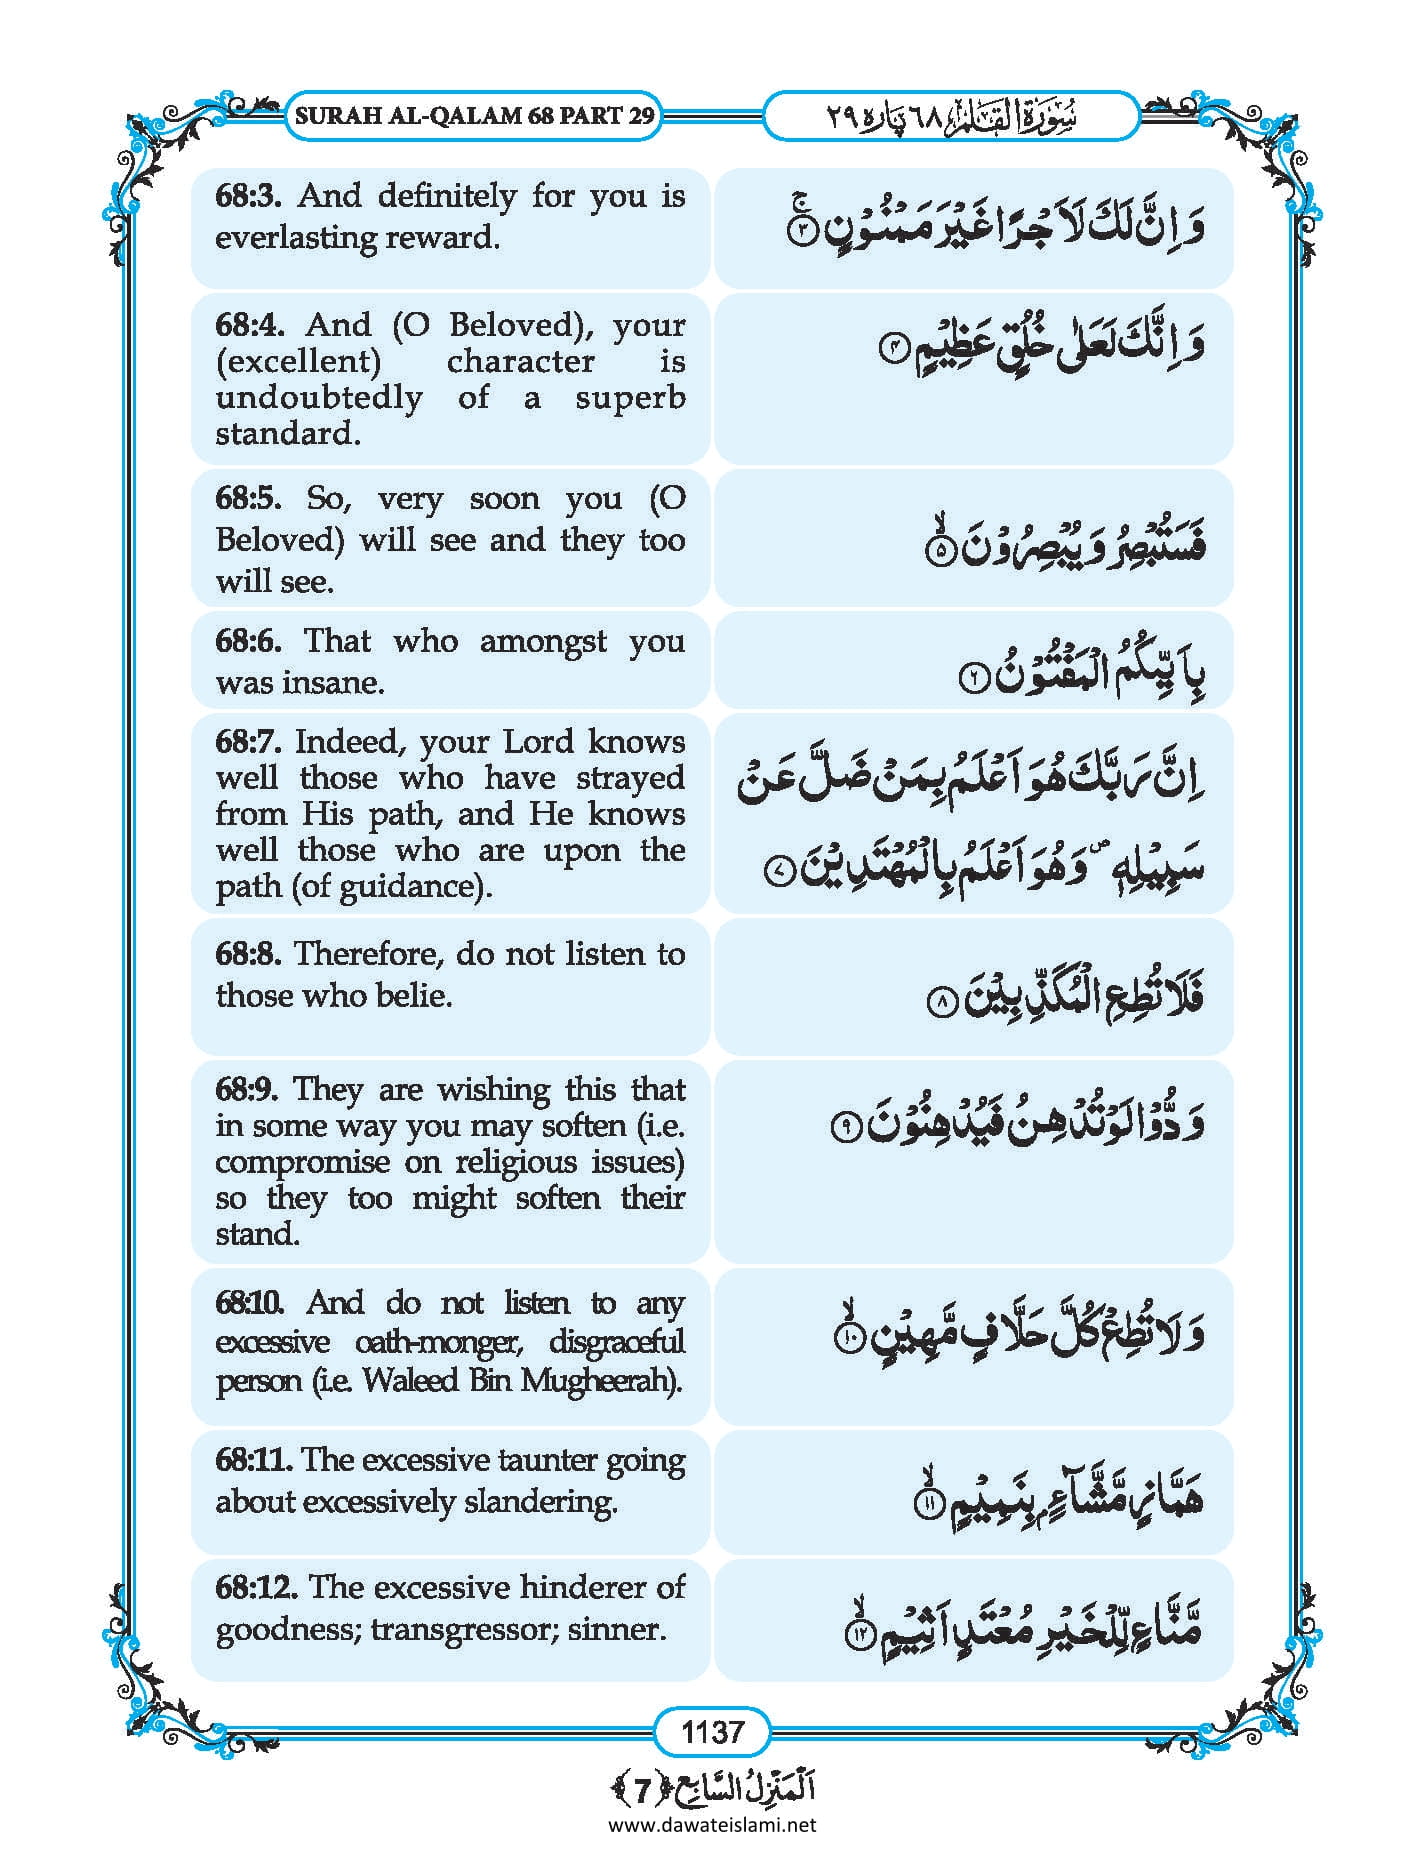 SURAH AL-QALAM 68 PART 29
سُوْرَةُ الْقَلَم ٦٨ پاره ٢٩
68:3. And definitely for you is
everlasting reward.
وَ اِنَّ لَكَ لَاَجْرًا غَیْرَ مَمْنُوْنٍۚ ﴿۳﴾
68:4. And (O Beloved), your
(excellent) character is
undoubtedly of a superb
standard.
وَ اِنَّكَ لَعَلٰى خُلُقٍ عَظِیْمٍ ﴿۴﴾
68:5. So, very soon you (O
Beloved) will see and they too
will see.
فَسَتُبْصِرُ وَ یُبْصِرُوْنَۙ ﴿۵﴾
68:6. That who amongst you
was insane.
بِاَىیِّكُمُ الْمَفْتُوْنُ ﴿۶﴾
68:7. Indeed, your Lord knows
well those who have strayed
from His path, and He knows
well those who are upon the
path (of guidance).
اِنَّ رَبَّكَ هُوَ اَعْلَمُ بِمَنْ ضَلَّ عَنْ
سَبِیْلِهٖ ۪ وَ هُوَ اَعْلَمُ بِالْمُهْتَدِیْنَ ﴿۷﴾
68:8. Therefore, do not listen to
those who belie.
فَلَا تُطِعِ الْمُكَذِّبِیْنَ ﴿۸﴾
68:9. They are wishing this that
in some way you may soften (i.e.
compromise on religious issues)
so they too might soften their
stand.
وَدُّوْا لَوْ تُدْهِنُ فَیُدْهِنُوْنَ ﴿۹﴾
68:10. And do not listen to any
excessive oath-monger, disgraceful
person (i.e. Waleed Bin Mugheerah).
وَ لَا تُطِعْ كُلَّ حَلَّافٍ مَّهِیْنٍۙ ﴿۱۰﴾
68:11. The excessive taunter going
about excessively slandering.
هَمَّازٍ مَّشَّآءٍۭ بِنَمِیْمٍۙ ﴿۱۱﴾
68:12. The excessive hinderer of
goodness; transgressor; sinner.
مَّنَّاعٍ لِّلْخَیْرِ مُعْتَدٍ اَثِیْمٍۙ ﴿۱۲﴾
1137
اَلْمَنْزِلُ السَّابِع ﴿7﴾
www.dawateislami.net